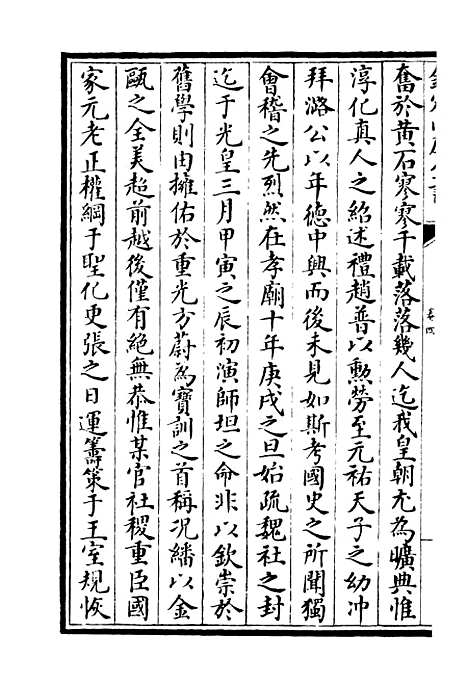 奮於黄石寥寥千載落落幾人迄我皇朝尤為曠典惟
淳化真人之紹述禮趙普以勲勞至元祐天子之幼冲
拜潞公以年徳中興而後未見如斯考國史之所聞獨
會稽之先烈然在孝廟十年庚戌之旦始疏魏社之封
迄于光皇三月甲寅之辰初演師垣之命非以欽崇於
舊學則由擁佑於重光方蔚為寶訓之首稱况繙以金
甌之全美超前越後僅有絶無恭惟某官社稷重臣國
家元老正權綱于聖化更張之日運籌策于王室規恢
卷四